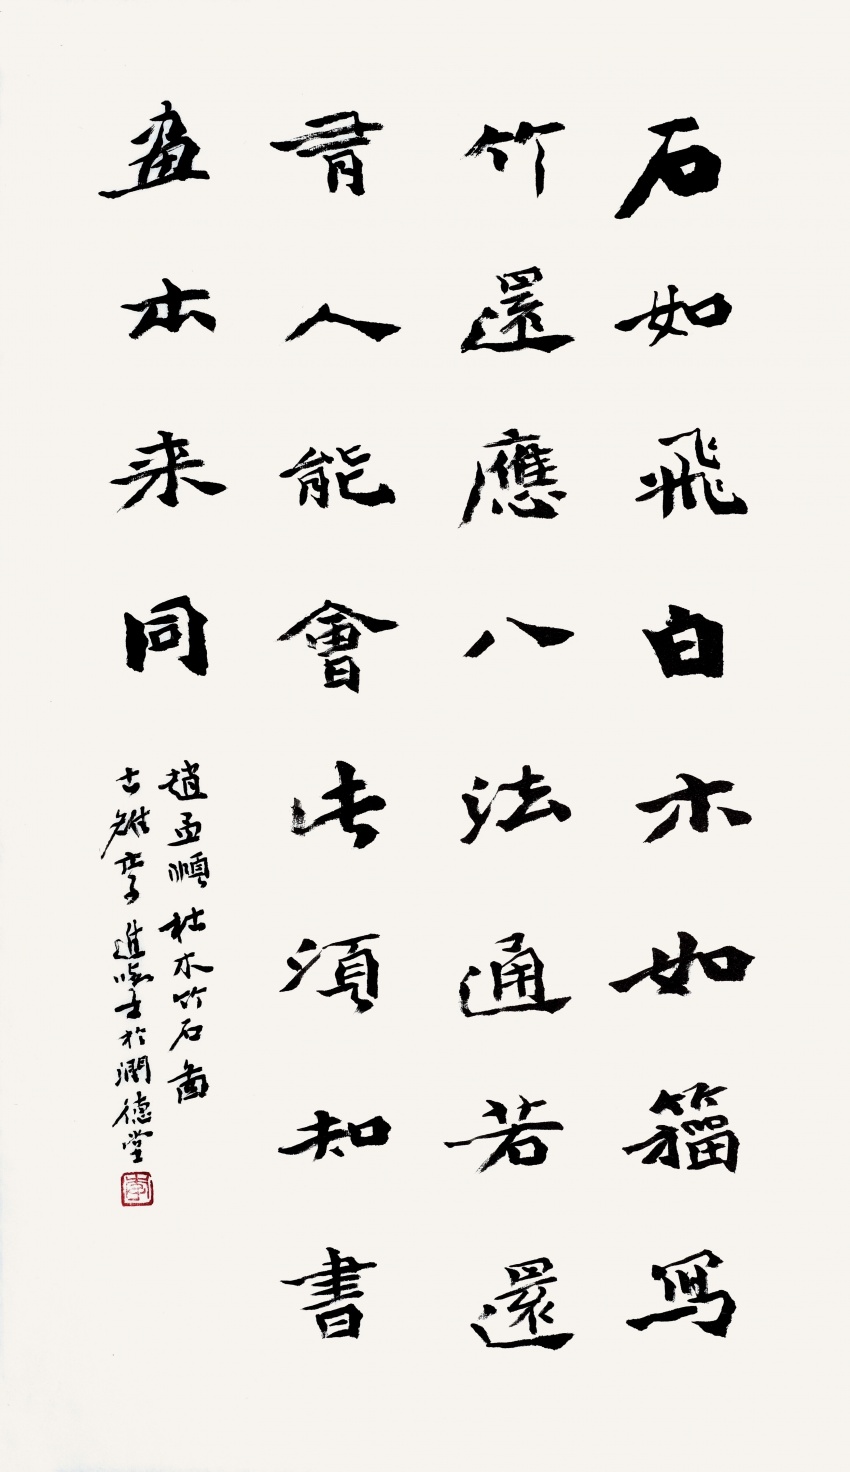 石如飛白木如籀寫
竹還應八法通若還
有人能會此須知書
畫本来同
趙孟頫枯木竹石圖
古雒李進書於潤德堂